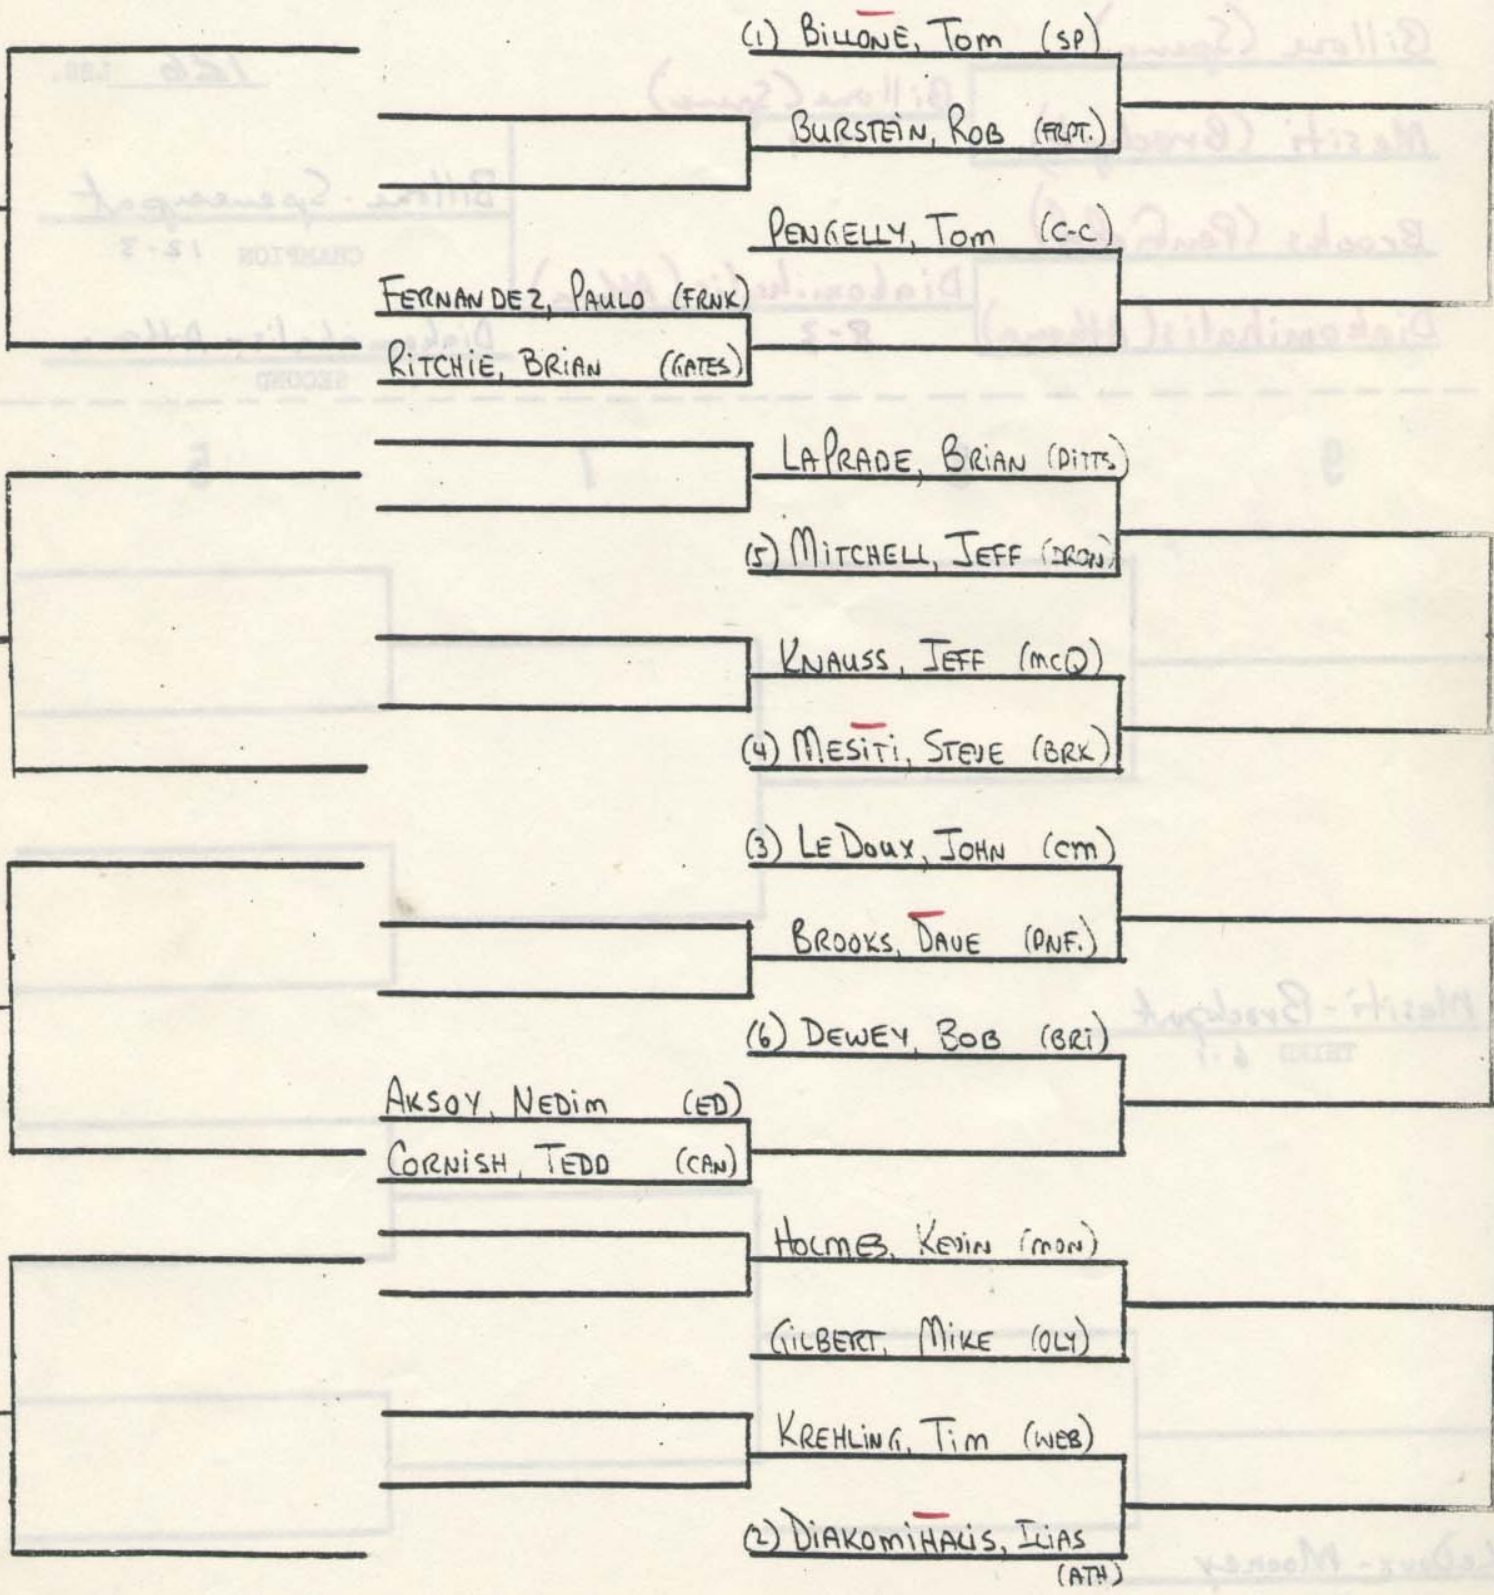 (1) BILLONE, TOM (SP)
BURSTEIN, ROB (FRPT.)
PENGELLY, TOM (C-C)
FERNANDEZ, PAULO (FRNK)
RITCHIE, BRIAN (GATES)
LAPRADE, BRIAN (PITTS)
(5) MITCHELL, JEFF (IRON)
KNAUSS, JEFF (McQ)
(4) MESITI, STEVE (BRK)
(3) LEDOUX, JOHN (CM)
BROOKS, DAVE (PNF.)
(6) DEWEY, BOB (BRI)
AKSOY, NEDIM (ED)
CORNISH, TEDD (CAN)
HOLMES, KEVIN (MON)
GILBERT, MIKE (OLY)
KREHLING, TIM (WEB)
(2) DIAKOMIHALIS, ILIAS
(ATH)